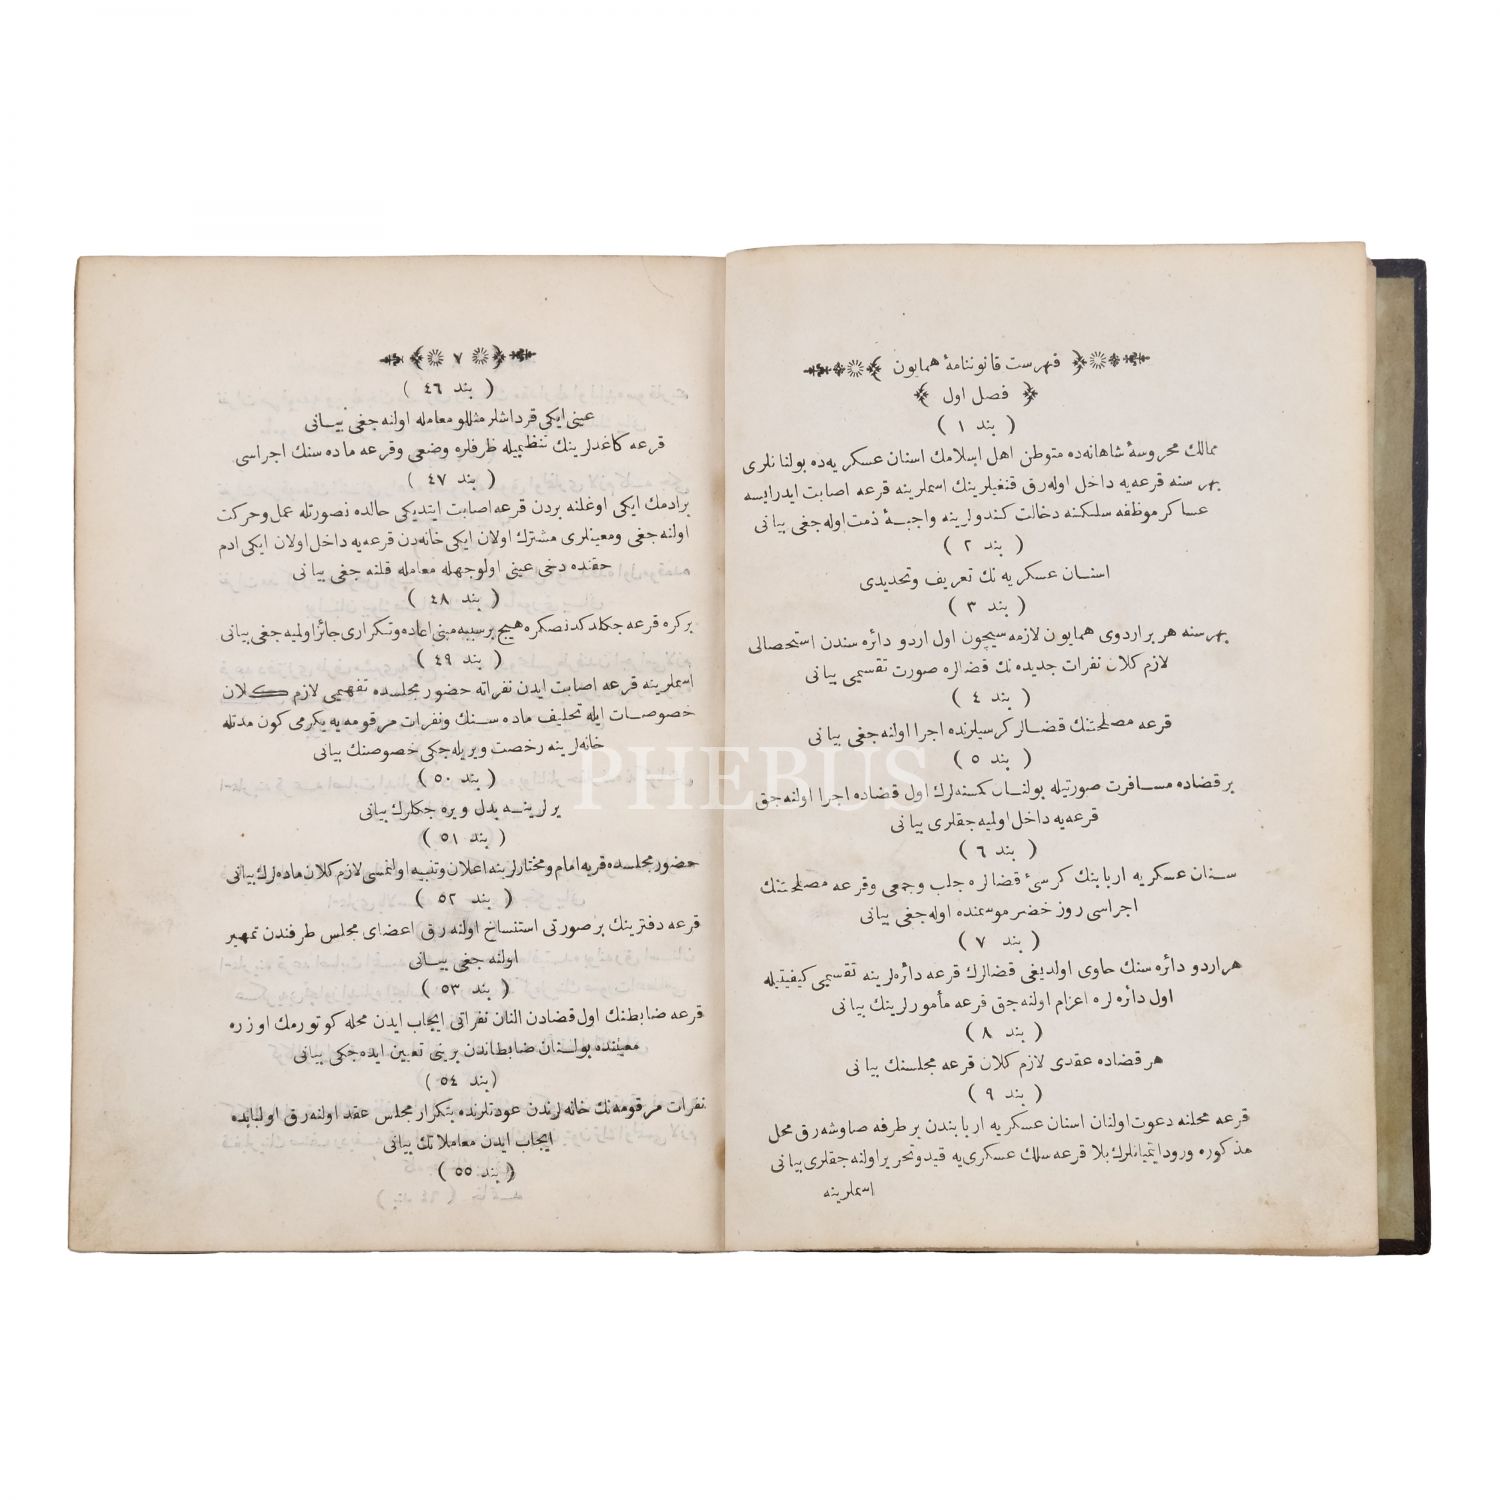 فهرست قانوننامهٔ همایون
فصل اول
( بند ١ )
ممالك محروسهٔ شاهانه‌ده متوطن اهل اسلامك اسنان عسكریه‌ده بولنانلری
بهر سنه قرعه‌یه داخل اوله‌رق قنغیلرینك اسملرینه قرعه اصابت ایدرایسه
عساكر موظفه سلكنه دخالت كندولرینه واجبهٔ ذمت اوله‌جغی بیانی
( بند ٢ )
اسنان عسكریه نك تعریف وتحدیدی
( بند ٣ )
بهر سنه هر بر اردوی همایون لازمه سیچون اول اردو دائره سندن استحصالی
لازم كلان نفرات جدیده نك قضالره صورت تقسیمی بیانی
( بند ٤ )
قرعه مصلحتنك قضالر كرسیلرنده اجرا اولنه‌جغی بیانی
( بند ٥ )
بر قضاده مسافرت صورتیله بولنان كمسنه‌لرك اول قضاده اجرا اولنه‌جق
قرعه‌یه داخل اولمیه‌جقلری بیانی
( بند ٦ )
سنان عسكریه اربابنك كرسئ قضالره جلب وجمعی وقرعه مصلحتنك
اجراسی روز خضر موسمنده اوله‌جغی بیانی
( بند ٧ )
هر اردو دائره سنك حاوی اولدیغی قضالرك قرعه دائره‌لرینه تقسیمی كیفیتیله
اول دائره لره اعزام اولنه‌جق قرعه مأمورلرینك بیانی
( بند ٨ )
هر قضاده عقدی لازم كلان قرعه مجلسنك بیانی
( بند ٩ )
قرعه محلنه دعوت اولنان اسنان عسكریه اربابندن بر طرفه صاوشه‌رق محل
مذكوره ورود ایتمیانلرك بلا قرعه سلك عسكری‌یه قید وتحریر اولنه‌جقلری بیانی
اسملرینه
٧
( بند ٤٦ )
عینی ایكی قرداشلر مثللو معامله اولنه‌جغی بیانی
قرعه كاغدلرینك تنظیمیله ظرفلره وضعی وقرعه ماده سنك اجراسی
( بند ٤٧ )
برادمك ایكی اوغلنه بردن قرعه اصابت ایتدیكی حالده نصورتله عمل وحركت
اولنه‌جغی ومعینلری مشترك اولان ایكی خانه‌دن قرعه‌یه داخل اولان ایكی ادم
حقنده دخی عینی اولوجهله معامله قلنه‌جغی بیانی
( بند ٤٨ )
بركره قرعه چكلدكدنصكره هیچ برسببه مبنی اعاده وتكراری جائز اولمیه‌جغی بیانی
( بند ٤٩ )
اسملرینه قرعه اصابت ایدن نفراته حضور مجلسده تفهیمی لازم كلان
خصوصات ایله تحلیف ماده سنك ونفرات مرقومه‌یه یكرمی كون مدتله
خانه‌لرینه رخصت ویریله‌جكی خصوصنك بیانی
( بند ٥٠ )
یرلرینه بدل ویره جكلرك بیانی
( بند ٥١ )
حضور مجلسده قریه امام ومختارلرینه اعلان وتنبیه اولنمسی لازم كلان ماده‌لرك بیانی
( بند ٥٢ )
قرعه دفترینك بر صورتی استنساخ اولنه‌رق اعضای مجلس طرفندن تمهیر
اولنه جغی بیانی
( بند ٥٣ )
قرعه ضابطنك اول قضادن النان نفراتی ایجاب ایدن محله كوتورمك اوزره
معیتنده بولنان ضابطاندن برینی تعیین ایده‌جكی بیانی
( بند ٥٤ )
نفرات مرقومه‌نك خانه‌لرندن عودتلرنده بتكرار مجلس عقد اولنه‌رق اولبابده
ایجاب ایدن معاملاتك بیانی
( بند ٥٥ )
PHEBUS